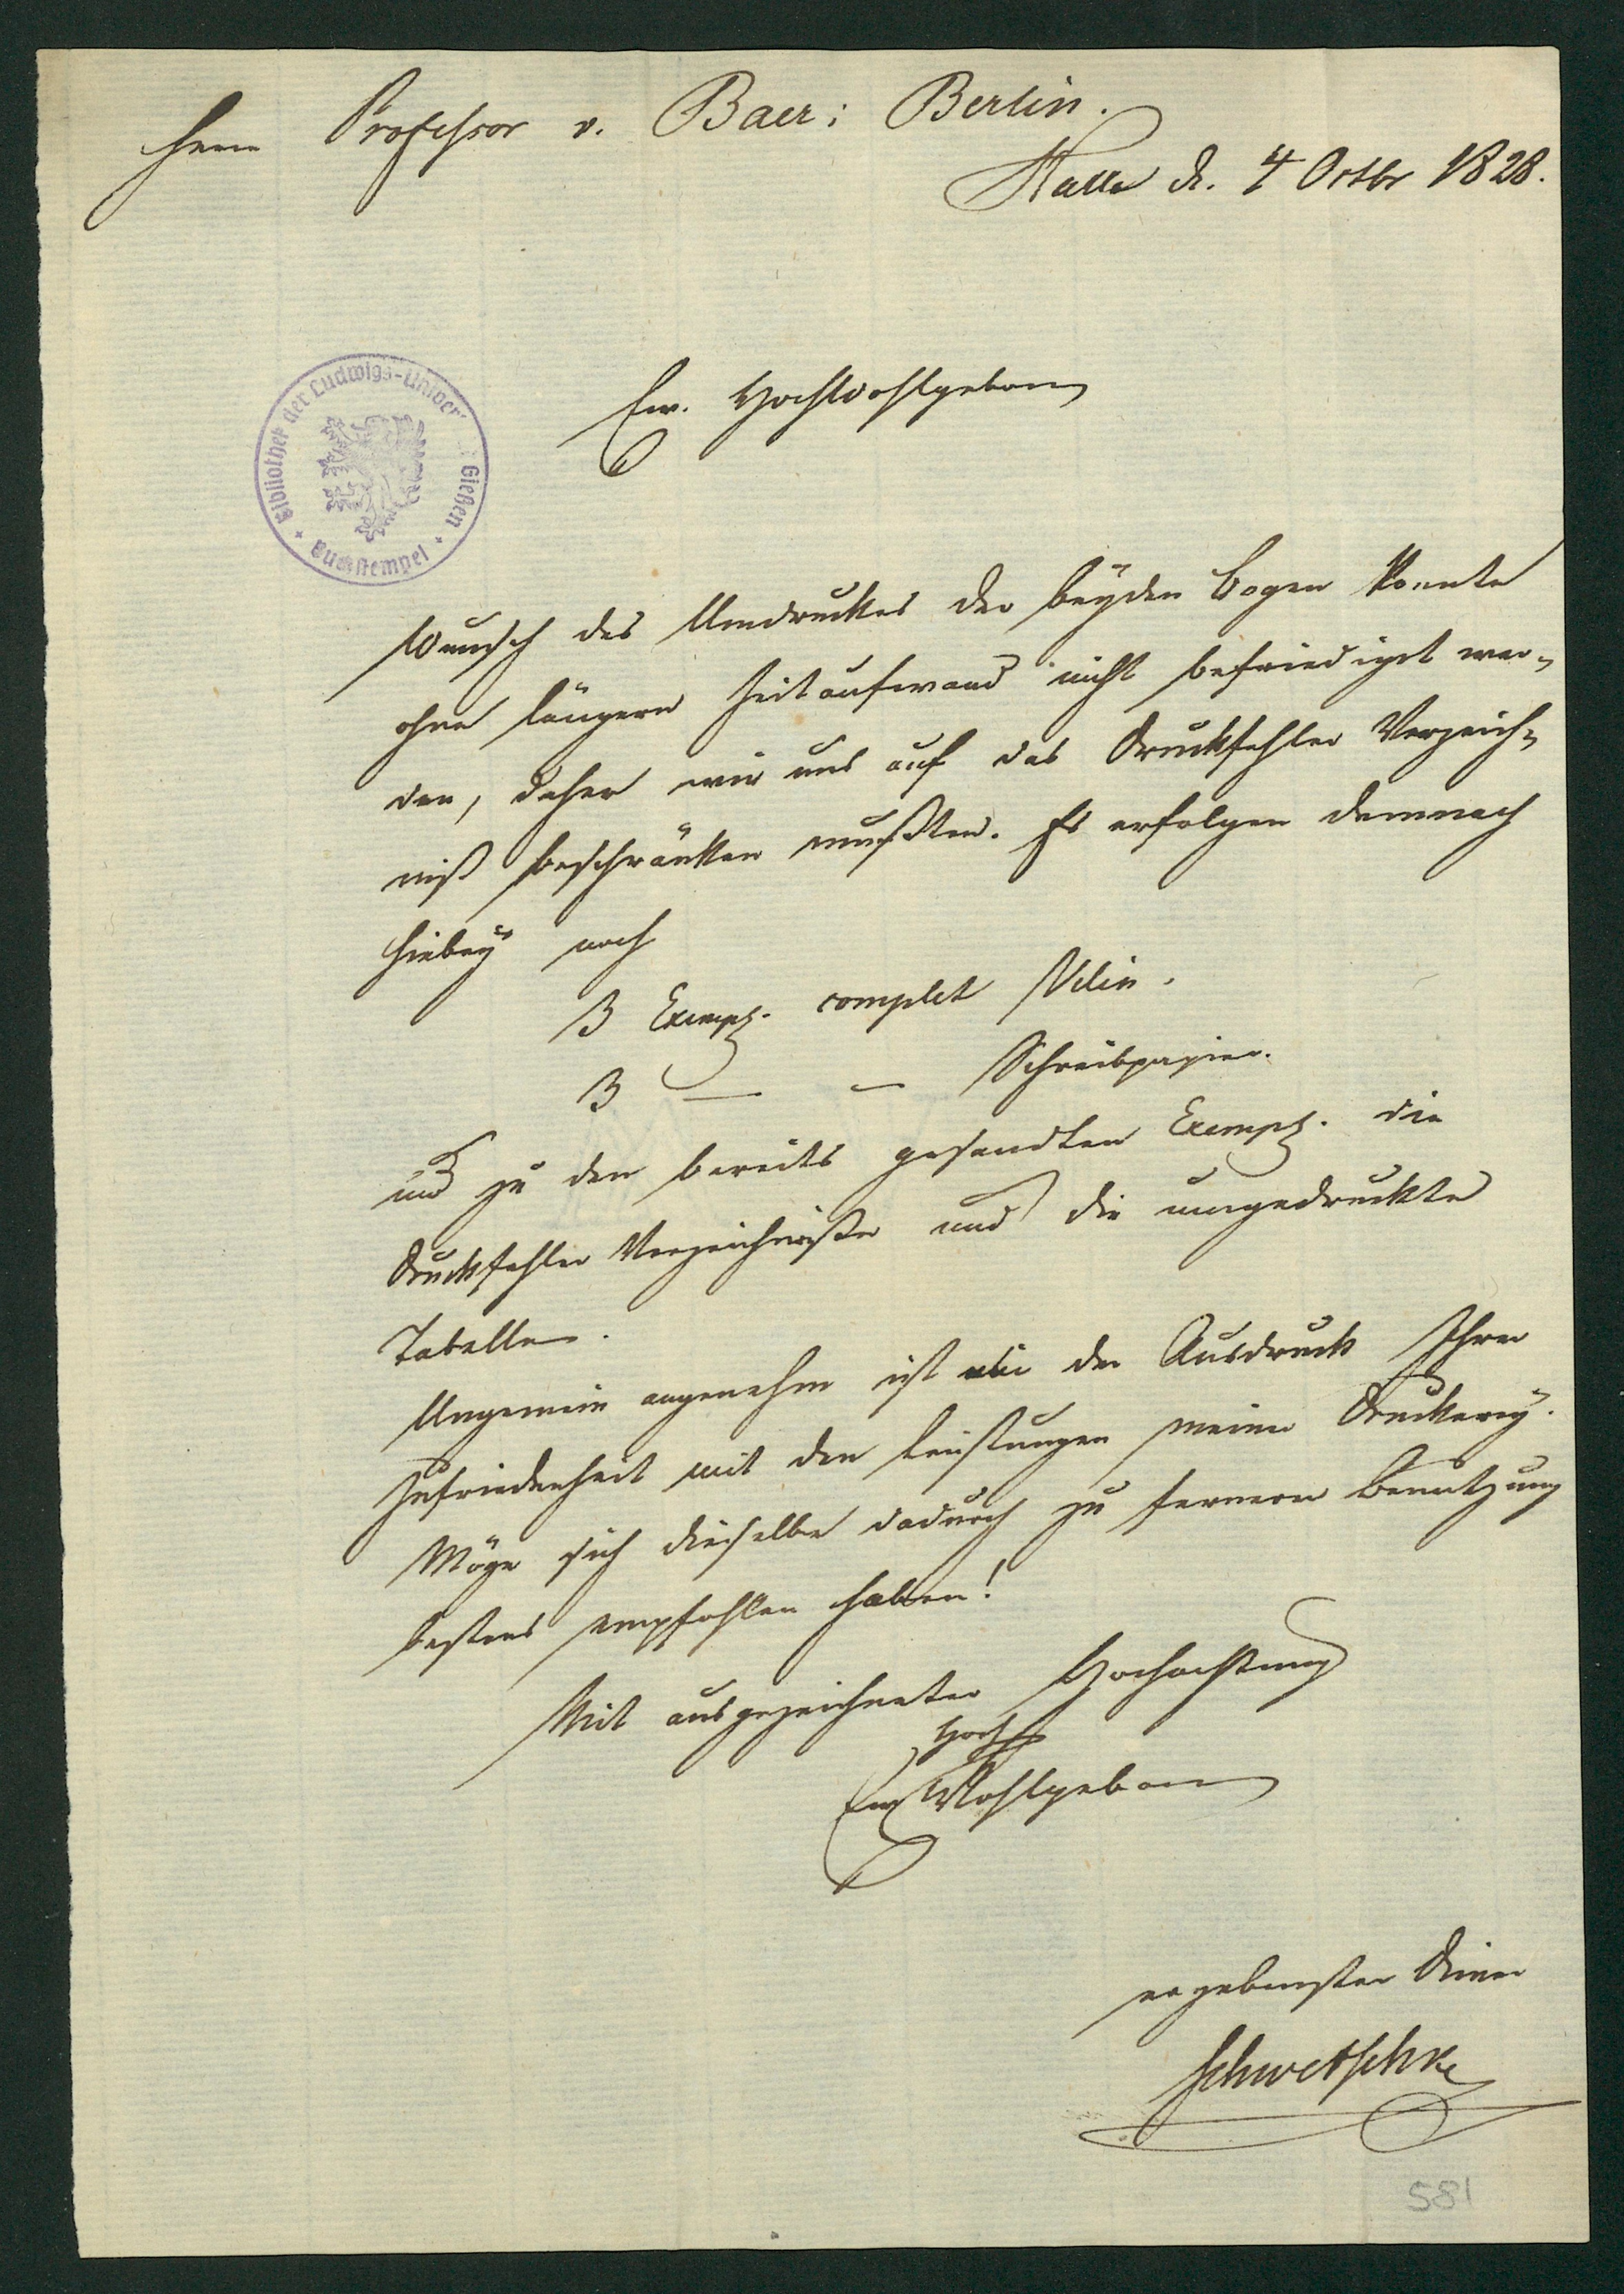 Herrn Professor v. Baer: Berlin.
Halle d. 4 Octbr 1828.
Bibliothek der Ludwigs-Univer Gießen
Buchstempel
Ew. Hochwohlgeboren
Wunsch des Umdruckes der beyden Bogen konnte
ohne längern Zeitaufwand nicht befriedigt wer-
den, daher wir uns auf das Druckfehler Verzeich-
niß beschränken mußten. Es erfolgen demnach
hiebey noch
3 Exempl. complet Velin.
3 — — Schreibpapier.
und zu den bereits gesandten Exempl. die
Druckfehler Verzeichniße und die umgedruckte
Tabelle.
Ungemein angenehm ist mir der Ausdruck Ihrer
Zufriedenheit mit den Leistungen meiner Druckerey.
Möge sich dieselbe dadurch zu fernerer Benutzung
bestens empfohlen haben!
Mit ausgezeichneter Hochachtung
Hoch
Ew Wohlgeboren
ergebenster Diener
Schwetschke
581